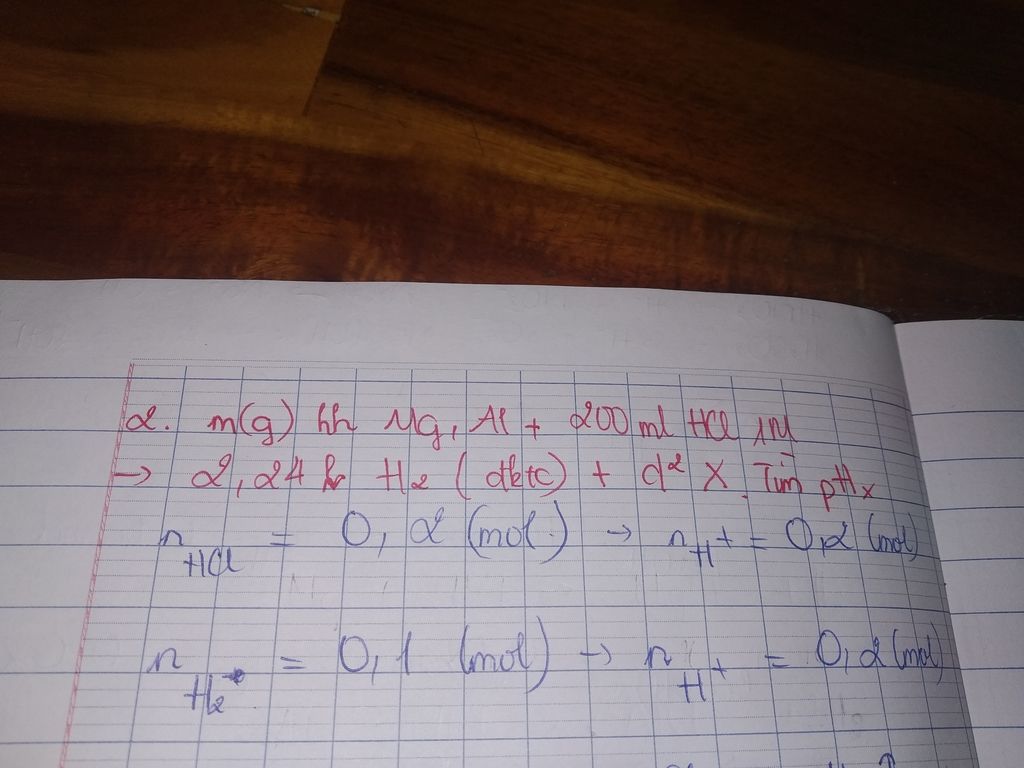 2. m(g) hh Mg, Al + 200 ml HCl 1M
→ 2,24 lít H₂ (đktc) + d² X. Tìm pHₓ
n HCl = 0,2 (mol) → n H⁺ = 0,2 (mol)
n H₂ = 0,1 (mol) → n H⁺ = 0,2 (mol)